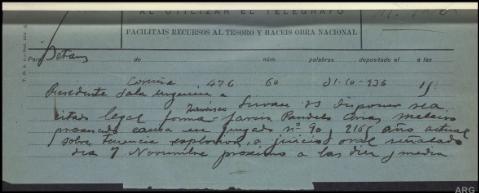 AL UTILIZAR EL TELEGRAFO
FACILITAIS RECURSOS AL TESORO Y HACEIS OBRA NACIONAL
Para Betanzos de núm. palabras depositado el a las
Coruña 476 60 31-10-936 18
Presidente Sala urgencia a
Sirvan Vs disponer sea
citado legal forma Francisco Javier Paredes Arias
procesado causa en juzgado nº 90, 216 año actual
sobre tenencia explosivos, a juicio oral señalado
día 7 Noviembre próximo a las diez y media
ARG